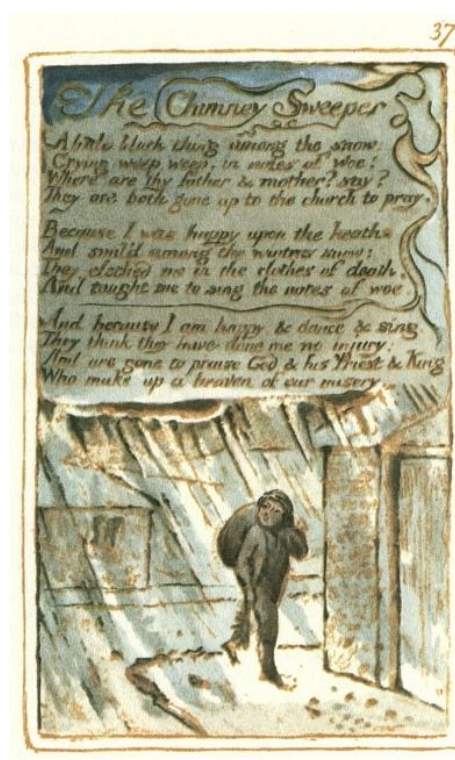 37
The Chimney Sweeper
A little black thing among the snow:
Crying weep weep, in notes of woe!
Where are thy father & mother? say?
They are both gone up to the church to pray.
Because I was happy upon the heath,
And smil'd among the winters snow:
They clothed me in the clothes of death,
And taught me to sing the notes of woe.
And because I am happy & dance & sing,
They think they have done me no injury:
And are gone to praise God & his Priest & King
Who make up a heaven of our misery.